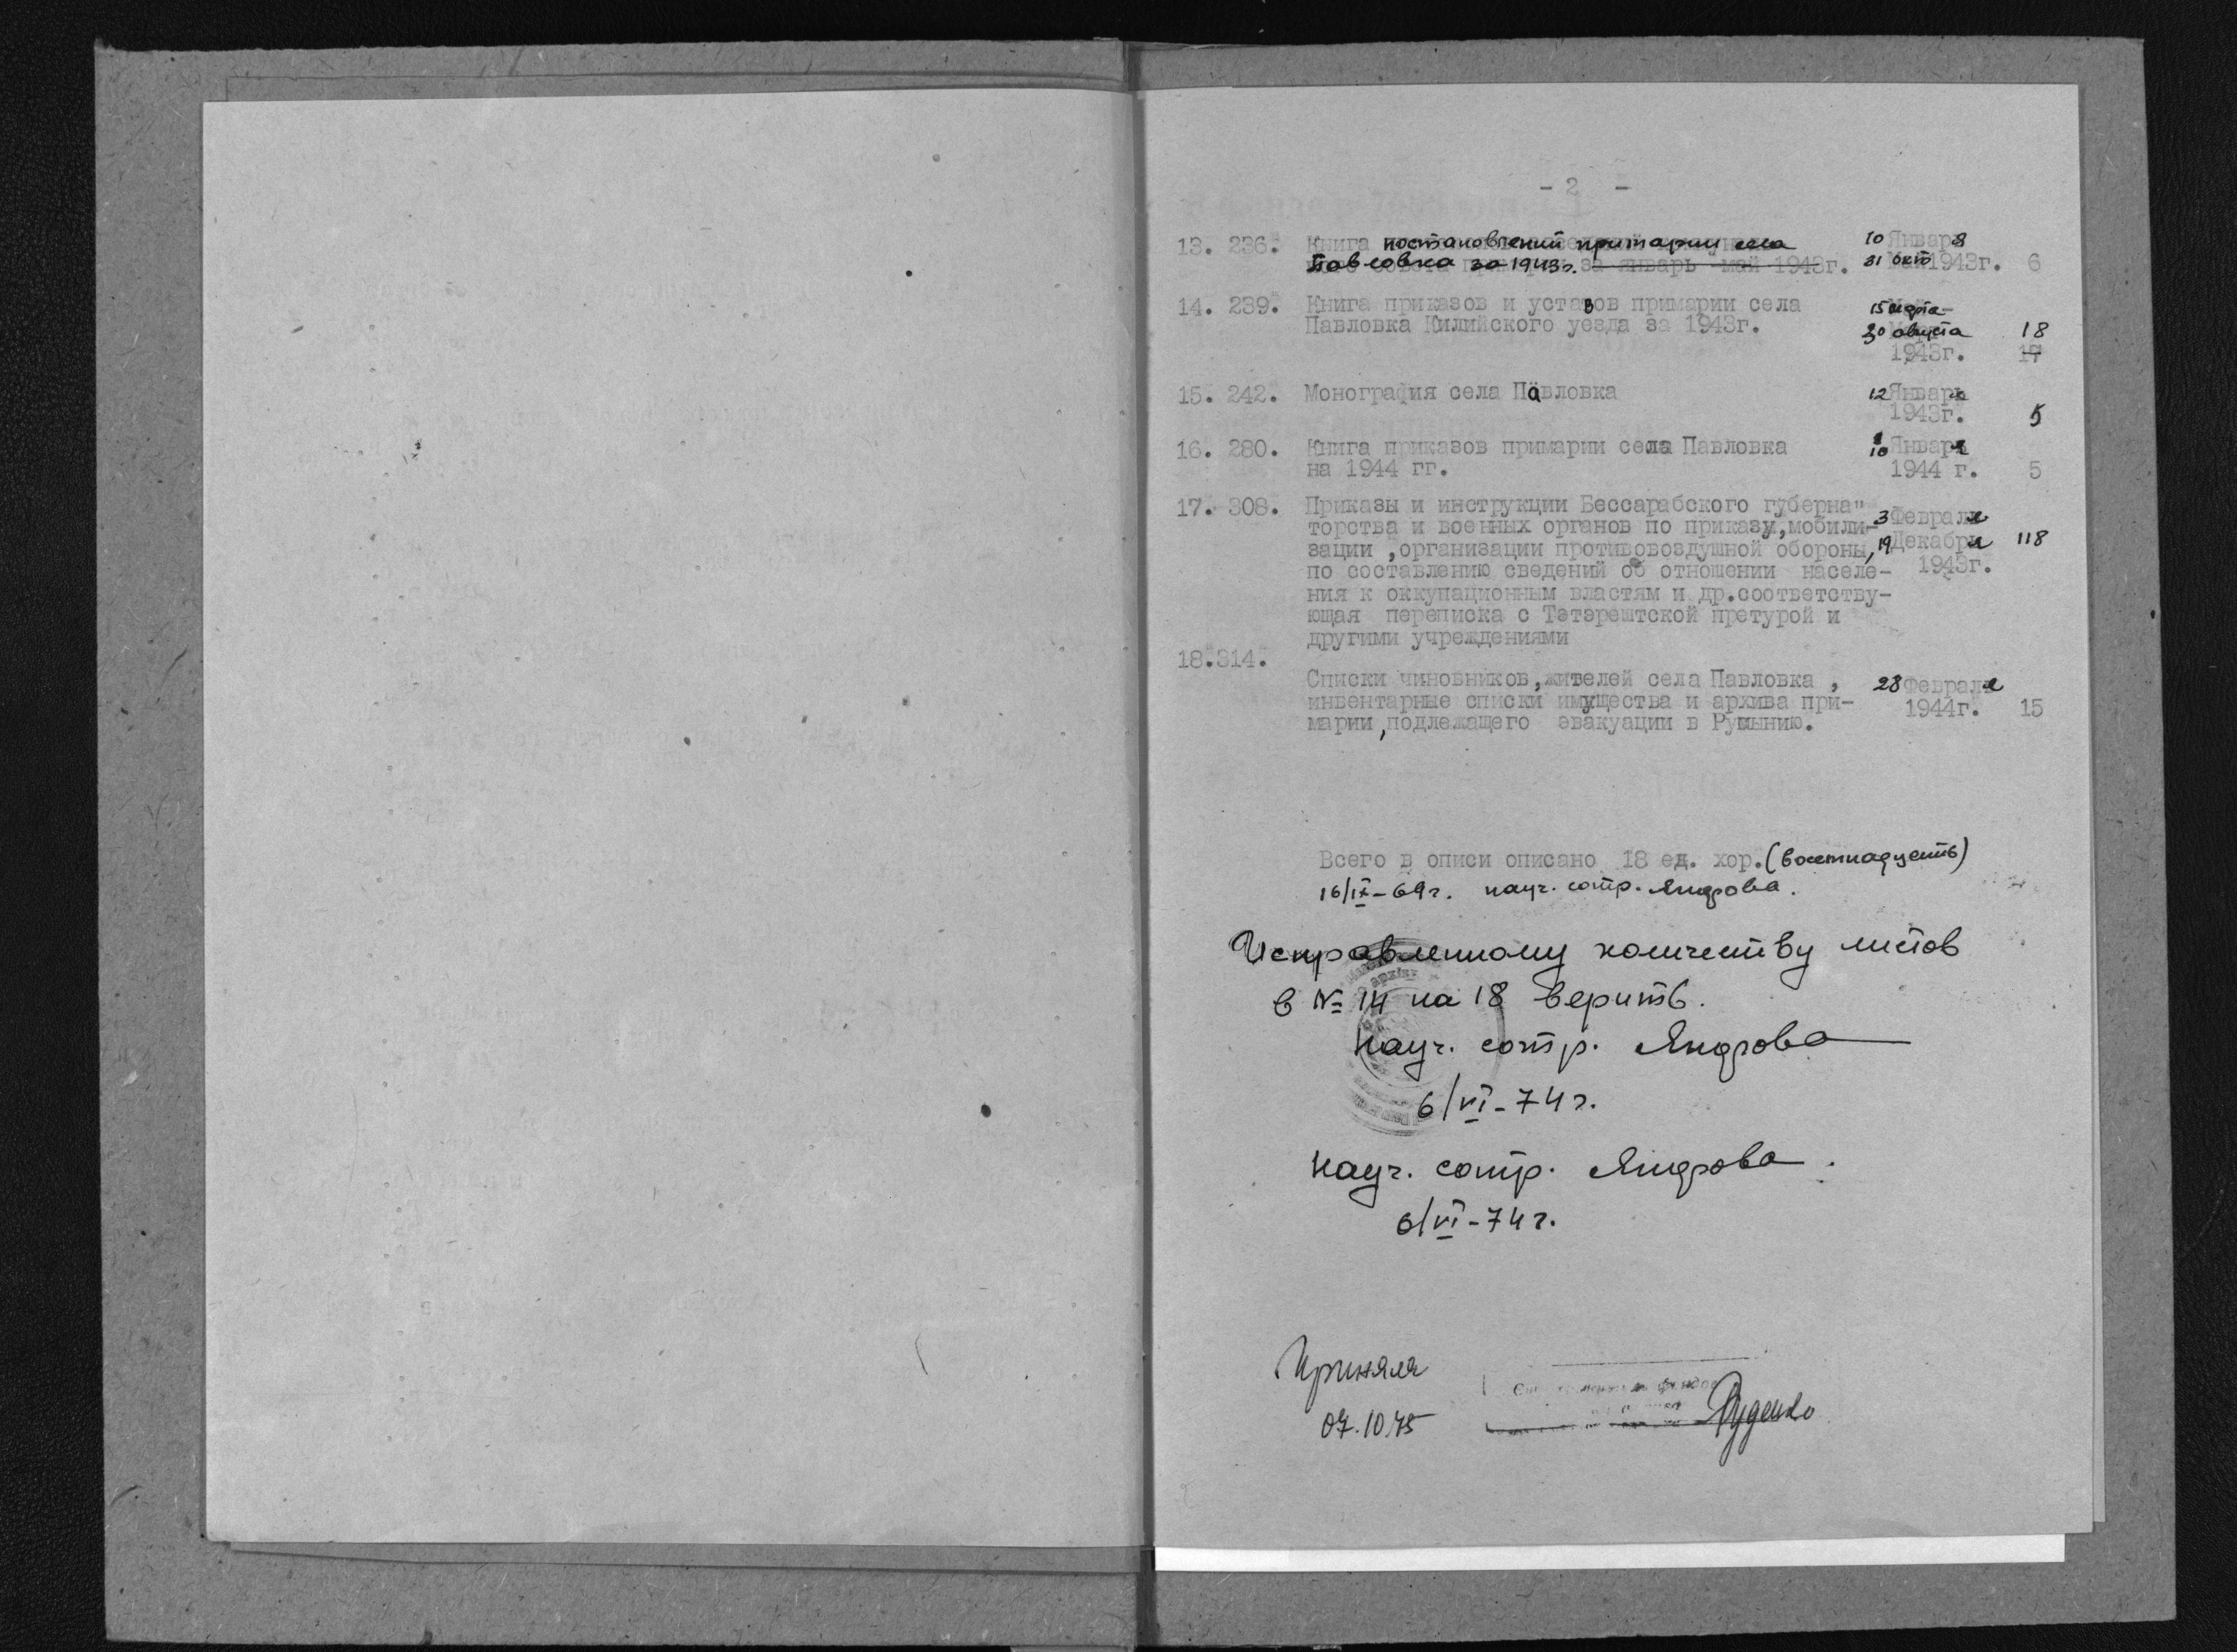 - 2 -
13. 236. Книга постановлений примарии села 10 Января
Павловка за 1943г. за январь-май 1943г. 31 окт 1943г. 6
14. 239. Книга приказов и уставов примарии села 15 марта-
Павловка Килийского уезда за 1943г. 30 августа 18
1943г. 17
15. 242. Монография села Павловка 12 Января
1943г. 5
16. 280. Книга приказов примарии села Павловка 10 Января
на 1944 гг. 1944 г. 5
17. 308. Приказы и инструкции Бессарабского губерна-
торства и военных органов по приказу, мобили- 3 Февраля
зации , организации противовоздушной обороны, 19 Декабря 118
по составлению сведений об отношении населе- 1943г.
ния к оккупационным властям и др.соответству-
ющая переписка с Тэтэрештской претурой и
другими учреждениями
18.314.
Списки чиновников, жителей села Павловка , 28 Февраля
инвентарные списки имущества и архива при- 1944г. 15
марии, подлежащего эвакуации в Румынию.
Всего в описи описано 18 ед. хор. (восемнадцать)
16/IX-69г. науч. сотр. Яндрова.
Исправленному количеству листов
в № 14 на 18 верить.
Науч. сотр. Яндрова
6/VI-74г.
Науч. сотр. Яндрова.
6/VI-74г.
Приняла
07.10.75 Руденко